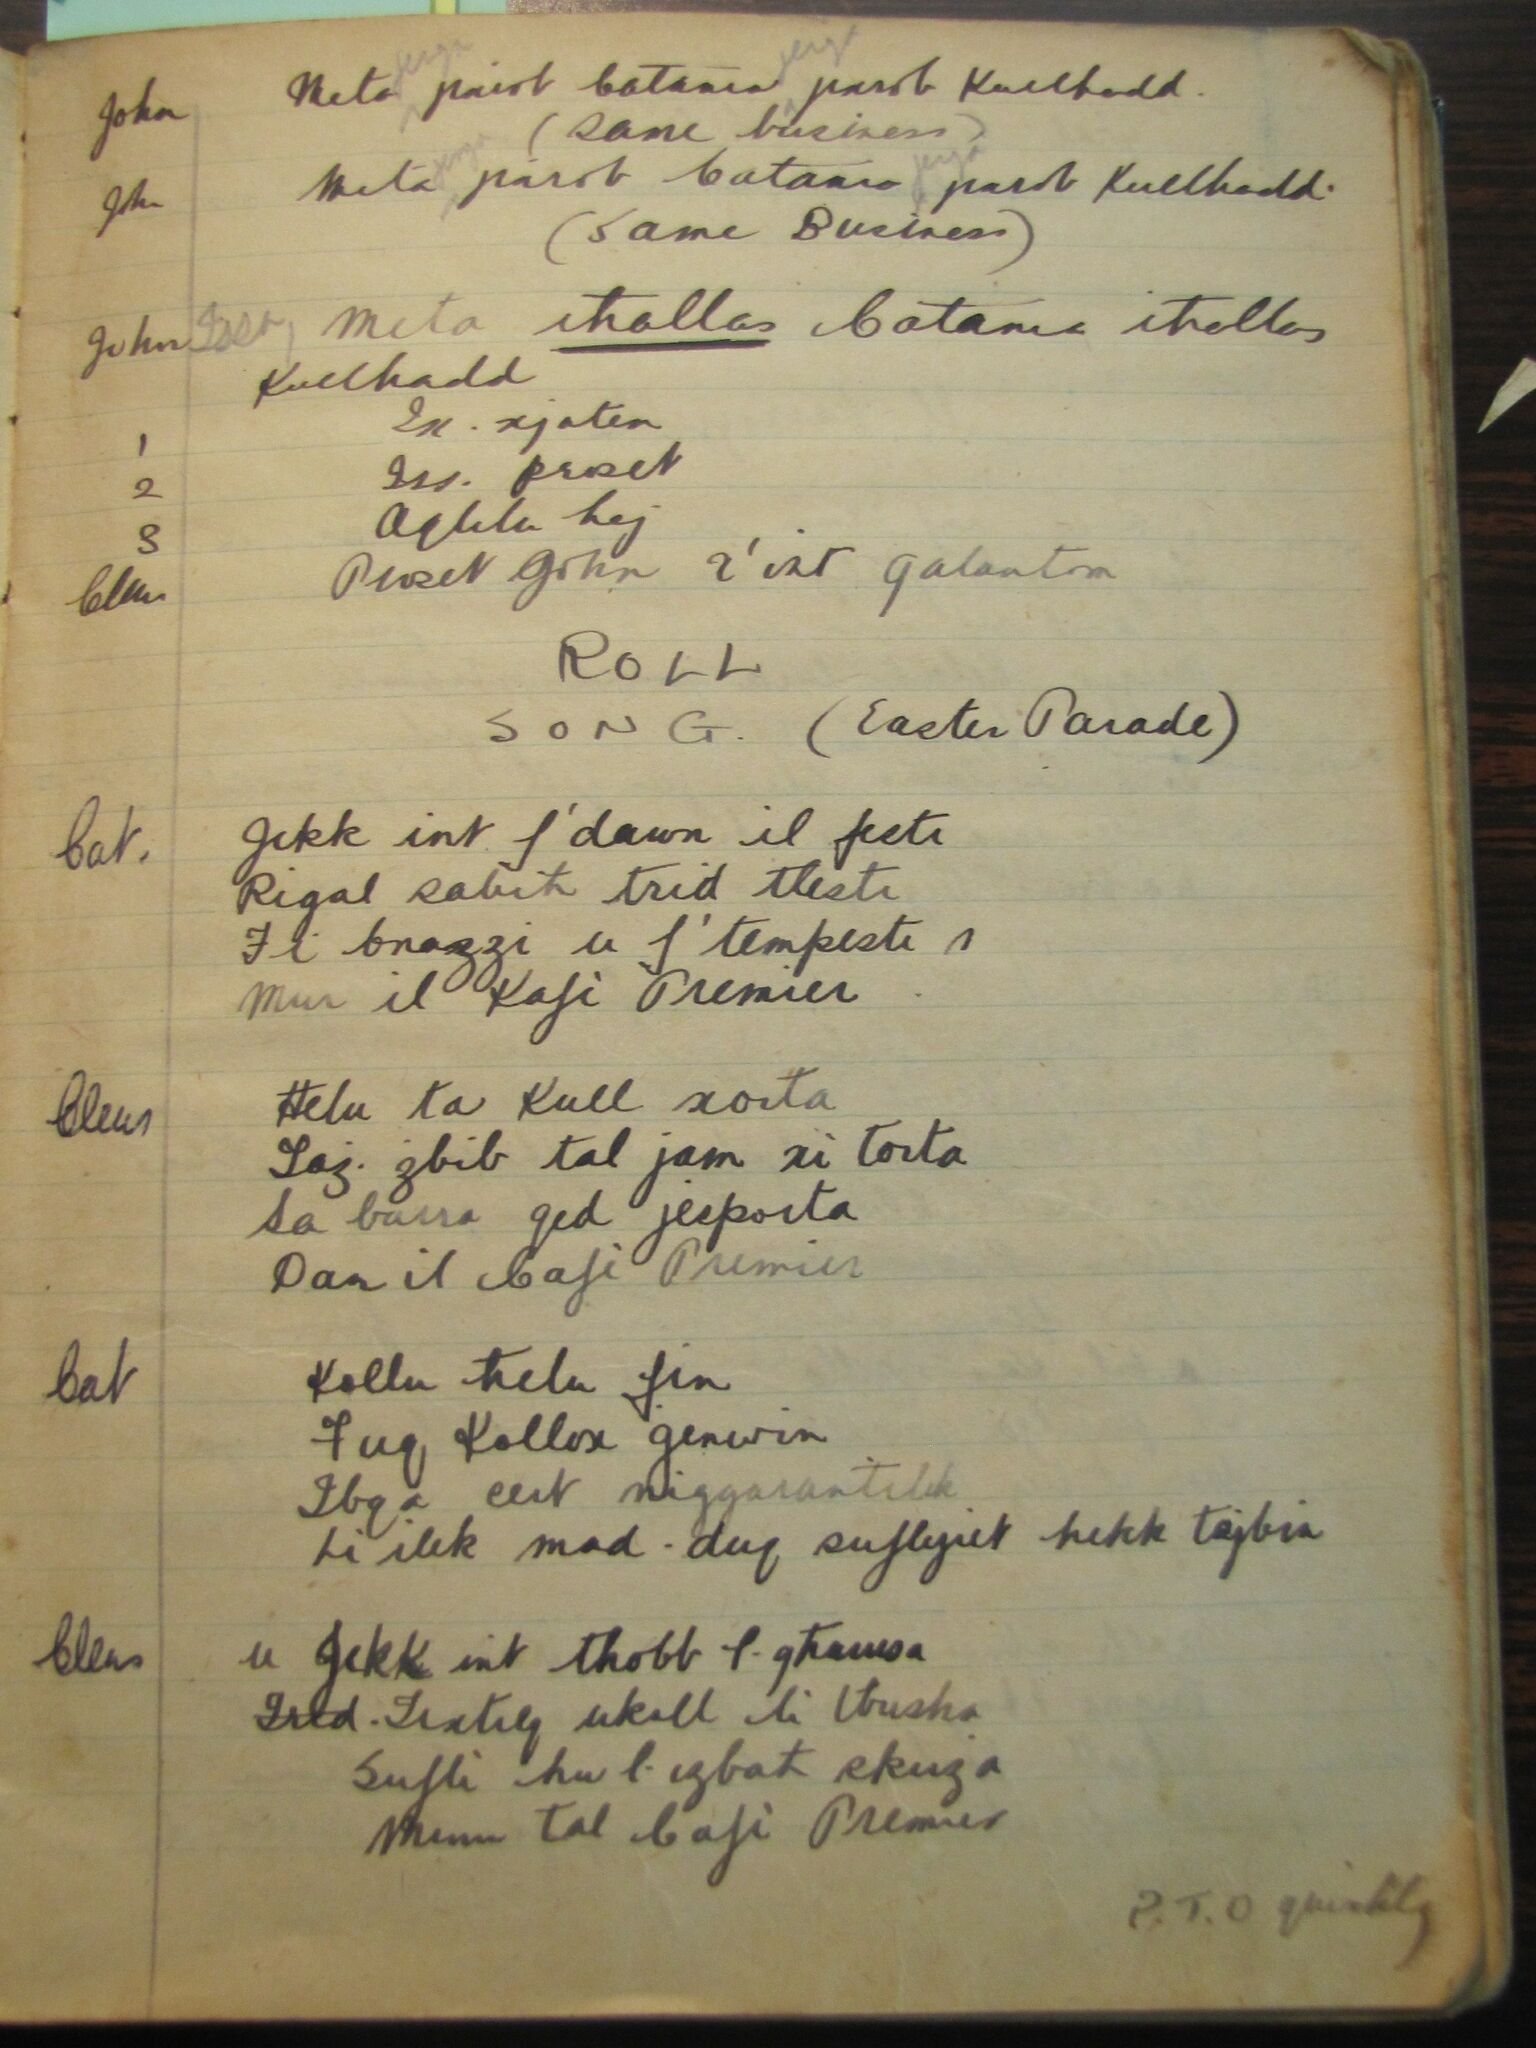 jerga jerga
John Meta parot Catania parot Kuelhadd.
(same business)
jerga jerga
John Meta parot Catania parot Kuelhadd.
(Same Business)
John Issa, Meta ithallas Catania ithallas
Kuelhadd
1 Ix. xjaten
2 Iss. proset
3 Aqleb hej
Clem Proset John x'int galantom
ROLL
SONG. (Easter Parade)
Cat. Jekk int f'dawn il festi
Rigal sabih trid tlesti
Fi bnazzi u f'tempesti
Mur il Kafi Premier
Clem Helu ta Kull xorta
Laz. zbib tal jam xi torta
Sa barra qed jesporta
Dan il Cafi Premier
Cat Kollu helu fin
Fuq Kollox genwin
Ibqa cert niggarantilek
Li ilek mad-duq suflejiet hekk tajbin
Clem u Jekk int thobb l-ghamsa
Ixtieq ukoll li
Sufli hu l-izbah skuza
Minn tal Cafi Premier
P.T.O quickly